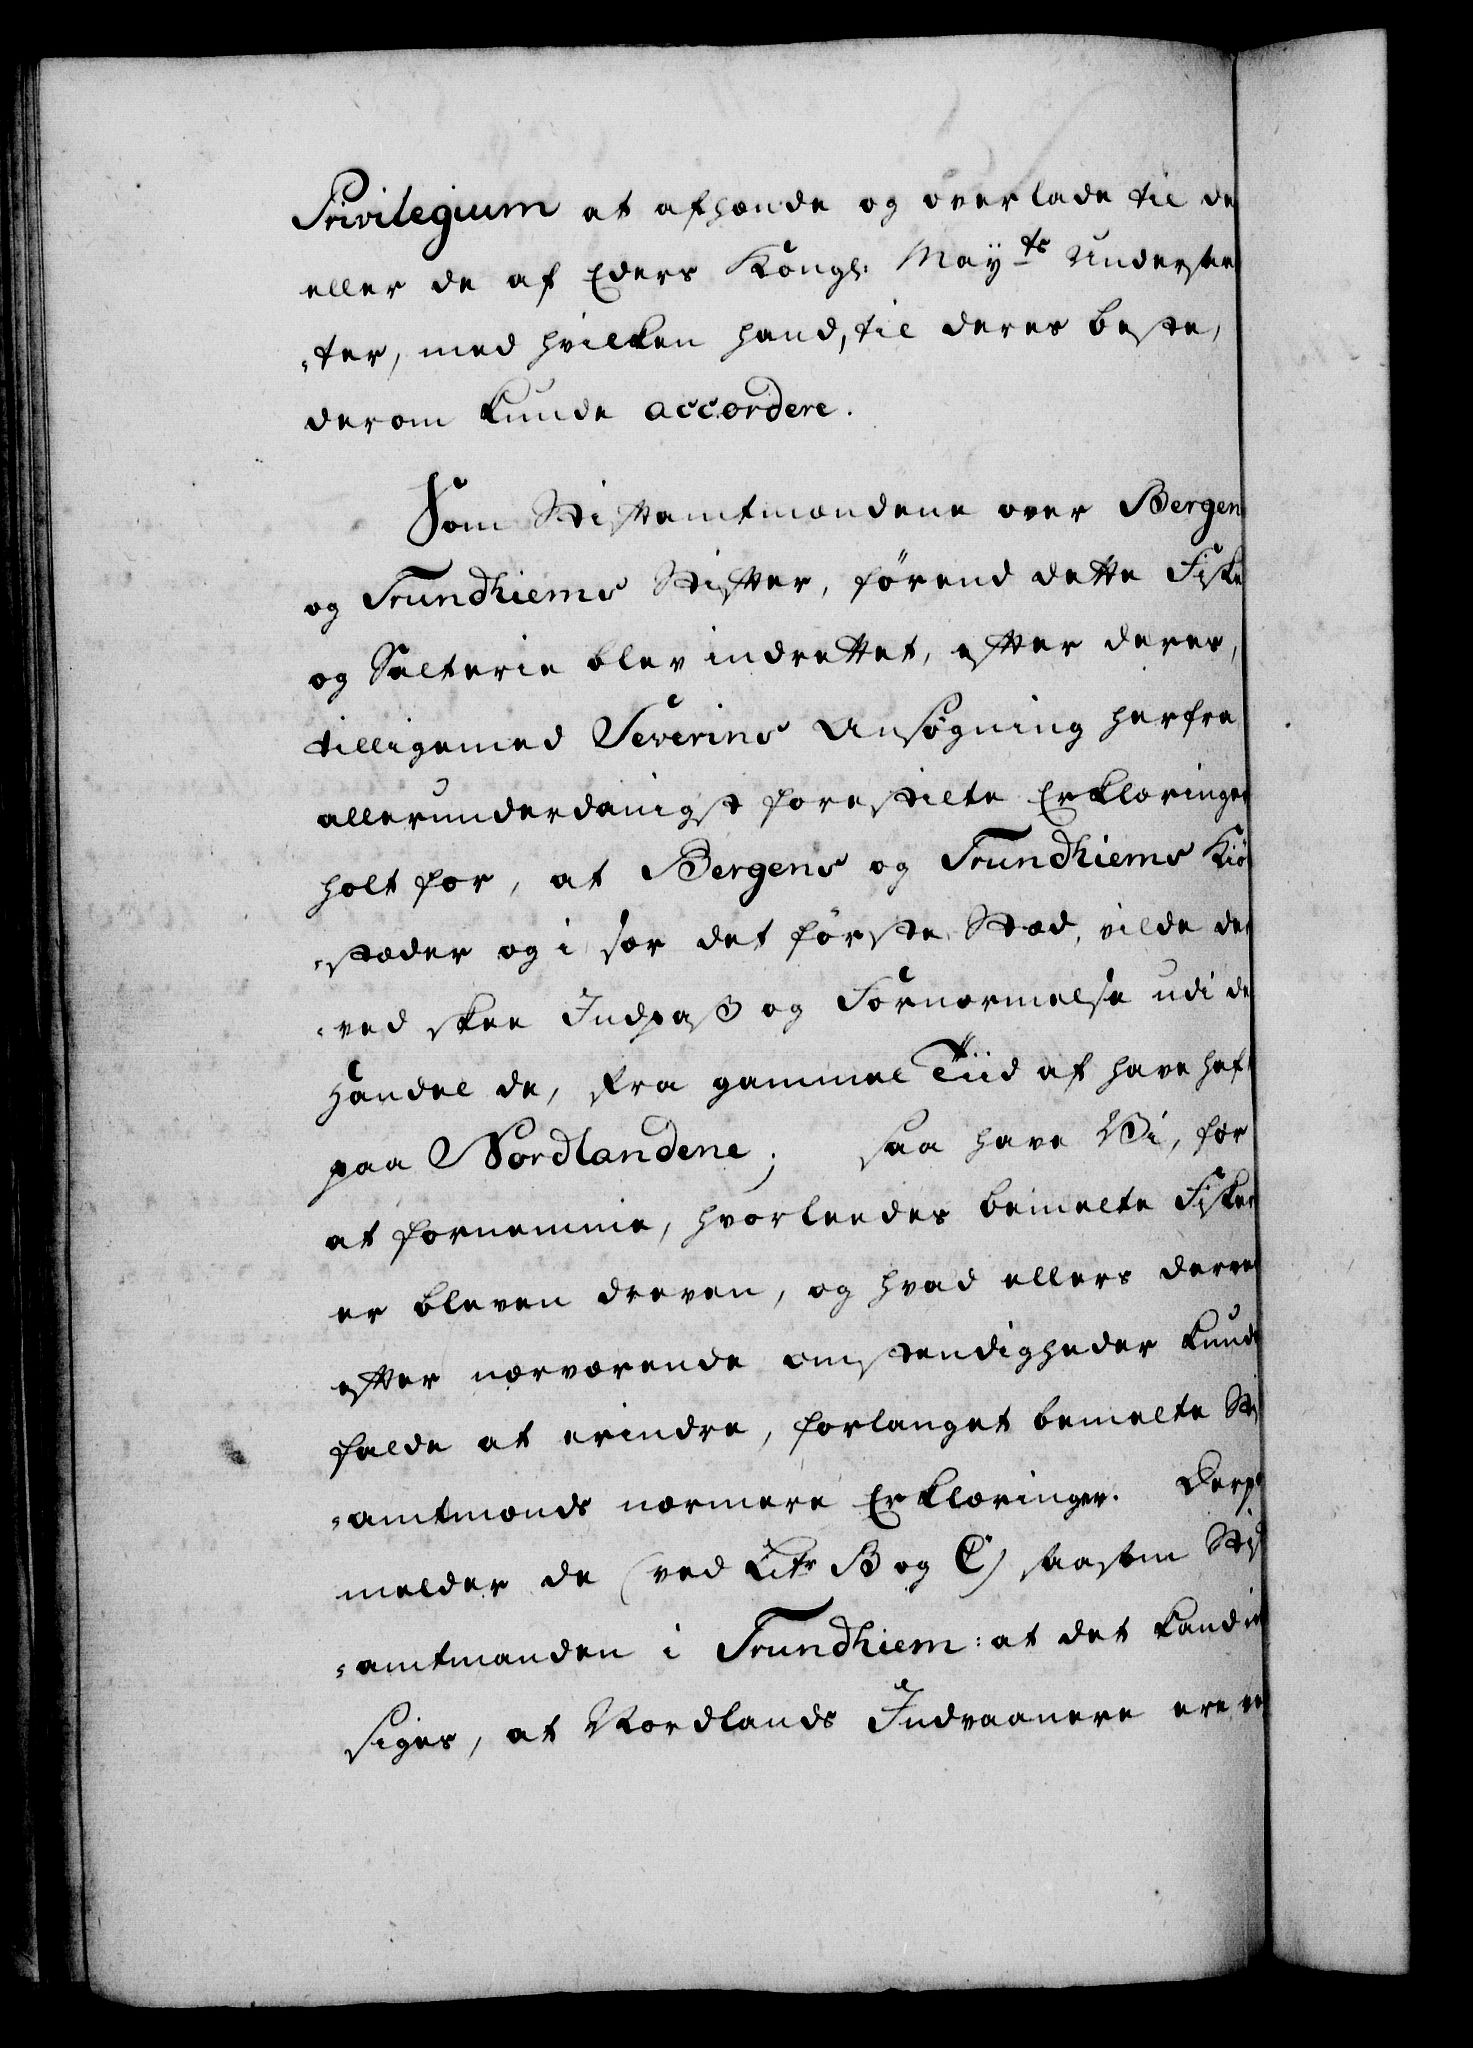 Privilegium at afhænde og overlade til de
eller de af Eders Kongl: May^ts Undersaa
-ter, med hvilken hand, til deres beste,
derom kunde accordere.
Som Stiftamtmændene over Bergen
og Trundhiems Stifter, førend dette Fiske
og Salterie blev indrettet, efter deres,
tilligemed Severins Ansøgning herfra
allerunderdanigst forestilte Erklæringer
holt for, at Bergens og Trundhiems Kiø
-stæder og i sær det første Stæd, vilde der
-ved skee Indpaß og Fornærmelse udi de
Handel de, fra gammel Tiid af have haft
paa Nordlandene; saa have Vi, for
at fornemme, hvorleedes bemelte Fiskerie
er bleven dreven, og hvad ellers derved
efter nærværende omstændigheder kunde
falde at erindre, forlanget bemelte Sti
-amtmænds nærmere Erklæringer. Derpaa
melder de (ved Litr B og C) saasom Stift
-amtmanden i Trundhiem: at det kand ie
siges, at Nordlands Indvaanere ere